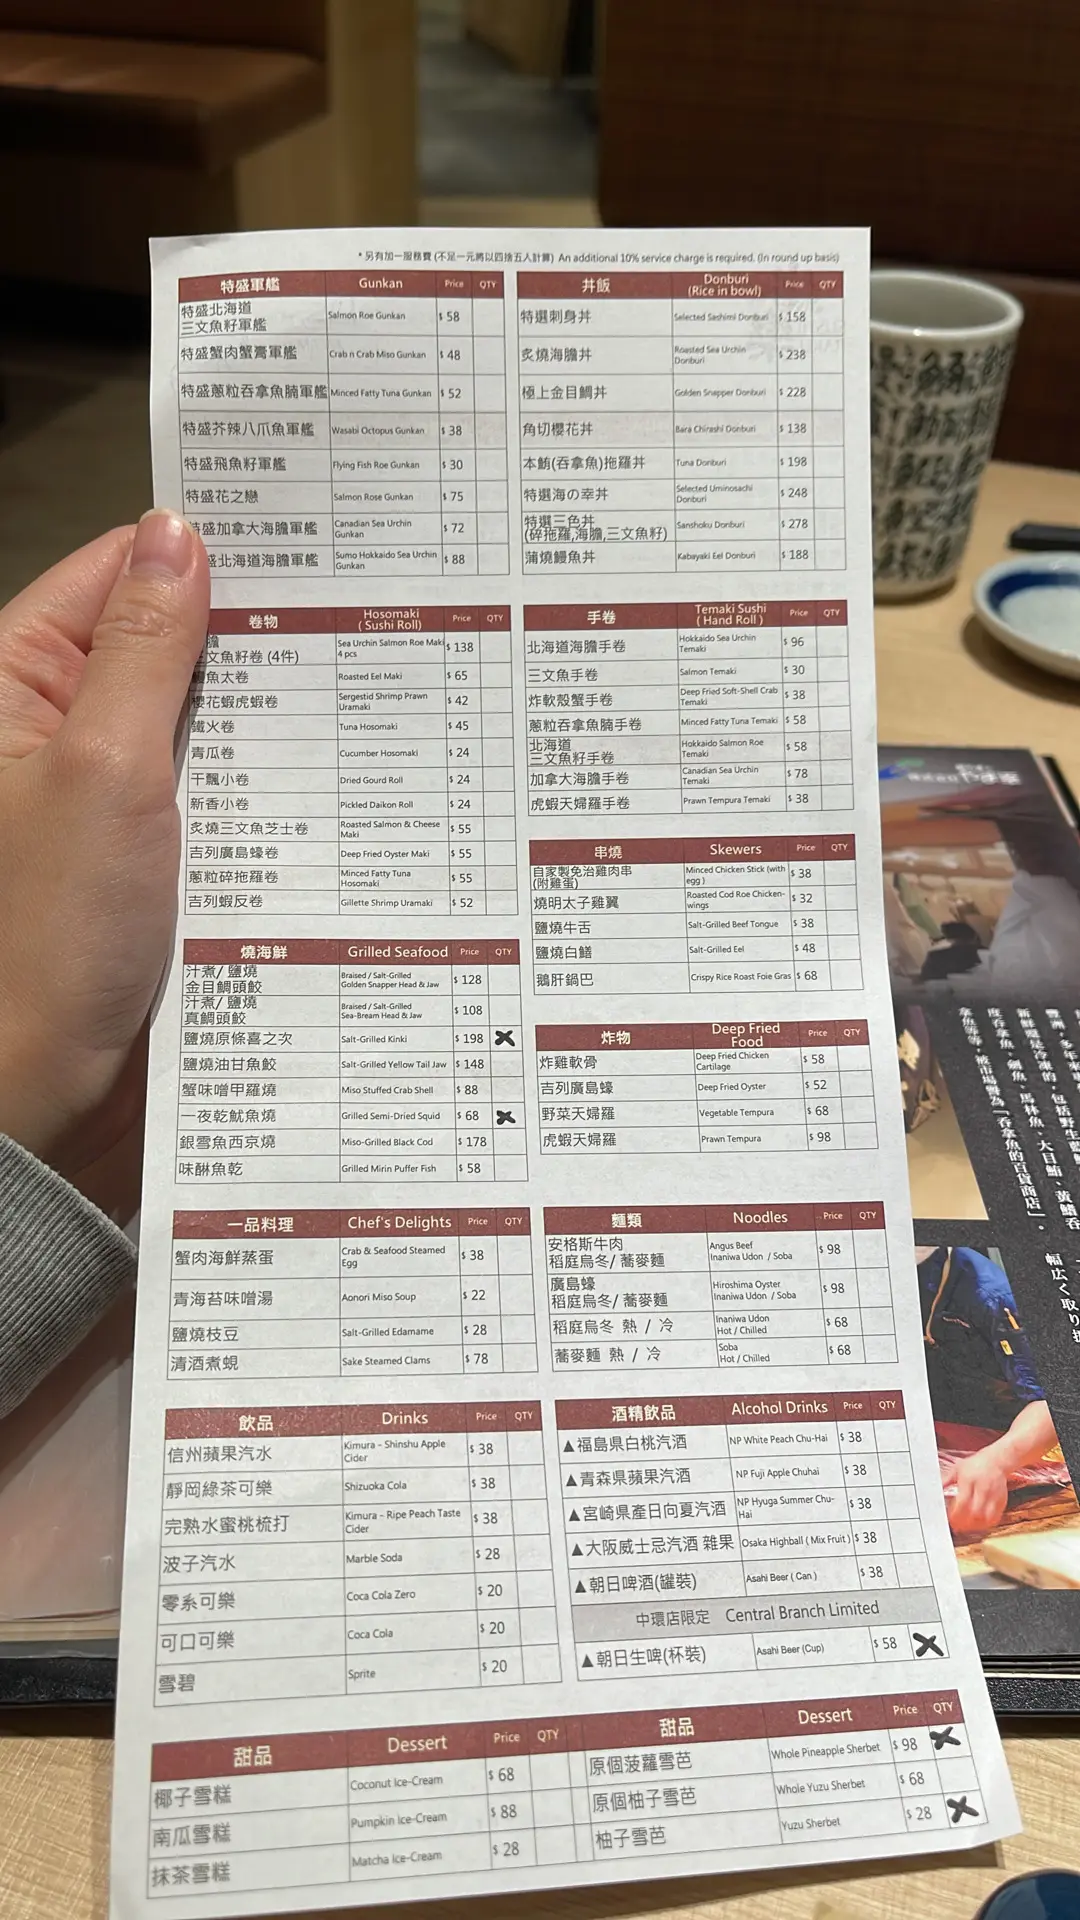 * 另有加一服務費 (不足一元將以四捨五入計算) An additional 10% service charge is required. (In round up basis)
特盛軍艦 Gunkan Price QTY
特盛北海道
三文魚籽軍艦 Salmon Roe Gunkan $ 58
特盛蟹肉蟹膏軍艦 Crab n Crab Miso Gunkan $ 48
特盛蔥粒吞拿魚腩軍艦 Minced Fatty Tuna Gunkan $ 52
特盛芥辣八爪魚軍艦 Wasabi Octopus Gunkan $ 38
特盛飛魚籽軍艦 Flying Fish Roe Gunkan $ 30
特盛花之戀 Salmon Rose Gunkan $ 75
特盛加拿大海膽軍艦 Canadian Sea Urchin Gunkan $ 72
盛北海道海膽軍艦 Sumo Hokkaido Sea Urchin Gunkan $ 88
丼飯 Donburi (Rice in bowl) Price QTY
特選刺身丼 Selected Sashimi Donburi $ 158
炙燒海膽丼 Roasted Sea Urchin Donburi $ 238
極上金目鯛丼 Golden Snapper Donburi $ 228
角切櫻花丼 Bara Chirashi Donburi $ 138
本鮪(吞拿魚)拖羅丼 Tuna Donburi $ 198
特選海の幸丼 Selected Uminosachi Donburi $ 248
特選三色丼
(碎拖羅,海膽,三文魚籽) Sanshoku Donburi $ 278
蒲燒鰻魚丼 Kabayaki Eel Donburi $ 188
卷物 Hosomaki ( Sushi Roll) Price QTY
膽
三文魚籽卷 (4件) Sea Urchin Salmon Roe Maki 4 pcs $ 138
魚太卷 Roasted Eel Maki $ 65
櫻花蝦虎蝦卷 Sergestid Shrimp Prawn Uramaki $ 42
鐵火卷 Tuna Hosomaki $ 45
青瓜卷 Cucumber Hosomaki $ 24
干瓢小卷 Dried Gourd Roll $ 24
新香小卷 Pickled Daikon Roll $ 24
炙燒三文魚芝士卷 Roasted Salmon & Cheese Maki $ 55
吉列廣島蠔卷 Deep Fried Oyster Maki $ 55
蔥粒碎拖羅卷 Minced Fatty Tuna Hosomaki $ 55
吉列蝦反卷 Gillette Shrimp Uramaki $ 52
手卷 Temaki Sushi ( Hand Roll ) Price QTY
北海道海膽手卷 Hokkaido Sea Urchin Temaki $ 96
三文魚手卷 Salmon Temaki $ 30
炸軟殼蟹手卷 Deep Fried Soft-Shell Crab Temaki $ 38
蔥粒吞拿魚腩手卷 Minced Fatty Tuna Temaki $ 58
北海道
三文魚籽手卷 Hokkaido Salmon Roe Temaki $ 58
加拿大海膽手卷 Canadian Sea Urchin Temaki $ 78
虎蝦天婦羅手卷 Prawn Tempura Temaki $ 38
串燒 Skewers Price QTY
自家製免治雞肉串
(附雞蛋) Minced Chicken Stick (with egg ) $ 38
燒明太子雞翼 Roasted Cod Roe Chicken-wings $ 32
鹽燒牛舌 Salt-Grilled Beef Tongue $ 38
鹽燒白鱔 Salt-Grilled Eel $ 48
鵝肝鍋巴 Crispy Rice Roast Foie Gras $ 68
燒海鮮 Grilled Seafood Price QTY
汁煮/ 鹽燒
金目鯛頭鮫 Braised / Salt-Grilled Golden Snapper Head & Jaw $ 128
汁煮/ 鹽燒
真鯛頭鮫 Braised / Salt-Grilled Sea-Bream Head & Jaw $ 108
鹽燒原條喜之次 Salt-Grilled Kinki $ 198
鹽燒油甘魚鮫 Salt-Grilled Yellow Tail Jaw $ 148
蟹味噌甲羅燒 Miso Stuffed Crab Shell $ 88
一夜乾魷魚燒 Grilled Semi-Dried Squid $ 68
銀雪魚西京燒 Miso-Grilled Black Cod $ 178
味醂魚乾 Grilled Mirin Puffer Fish $ 58
炸物 Deep Fried Food Price QTY
炸雞軟骨 Deep Fried Chicken Cartilage $ 58
吉列廣島蠔 Deep Fried Oyster $ 52
野菜天婦羅 Vegetable Tempura $ 68
虎蝦天婦羅 Prawn Tempura $ 98
一品料理 Chef's Delights Price QTY
蟹肉海鮮蒸蛋 Crab & Seafood Steamed Egg $ 38
青海苔味噌湯 Aonori Miso Soup $ 22
鹽燒枝豆 Salt-Grilled Edamame $ 28
清酒煮蜆 Sake Steamed Clams $ 78
麵類 Noodles Price QTY
安格斯牛肉
稻庭烏冬/ 蕎麥麵 Angus Beef Inaniwa Udon / Soba $ 98
廣島蠔
稻庭烏冬/ 蕎麥麵 Hiroshima Oyster Inaniwa Udon / Soba $ 98
稻庭烏冬 熱 / 冷 Inaniwa Udon Hot / Chilled $ 68
蕎麥麵 熱 / 冷 Soba Hot / Chilled $ 68
飲品 Drinks Price QTY
信州蘋果汽水 Kimura - Shinshu Apple Cider $ 38
靜岡綠茶可樂 Shizuoka Cola $ 38
完熟水蜜桃梳打 Kimura - Ripe Peach Taste Cider $ 38
波子汽水 Marble Soda $ 28
零系可樂 Coca Cola Zero $ 20
可口可樂 Coca Cola $ 20
雪碧 Sprite $ 20
酒精飲品 Alcohol Drinks Price QTY
▲福島県白桃汽酒 NP White Peach Chu-Hai $ 38
▲青森県蘋果汽酒 NP Fuji Apple Chuhai $ 38
▲宮崎県產日向夏汽酒 NP Hyuga Summer Chu-Hai $ 38
▲大阪威士忌汽酒 雜果 Osaka Highball ( Mix Fruit ) $ 38
▲朝日啤酒(罐裝) Asahi Beer ( Can ) $ 38
中環店限定 Central Branch Limited
▲朝日生啤(杯裝) Asahi Beer (Cup) $ 58
甜品 Dessert Price QTY
椰子雪糕 Coconut Ice-Cream $ 68
南瓜雪糕 Pumpkin Ice-Cream $ 88
抹茶雪糕 Matcha Ice-Cream $ 28
甜品 Dessert Price QTY
原個菠蘿雪芭 Whole Pineapple Sherbet $ 98
原個柚子雪芭 Whole Yuzu Sherbet $ 68
柚子雪芭 Yuzu Sherbet $ 28